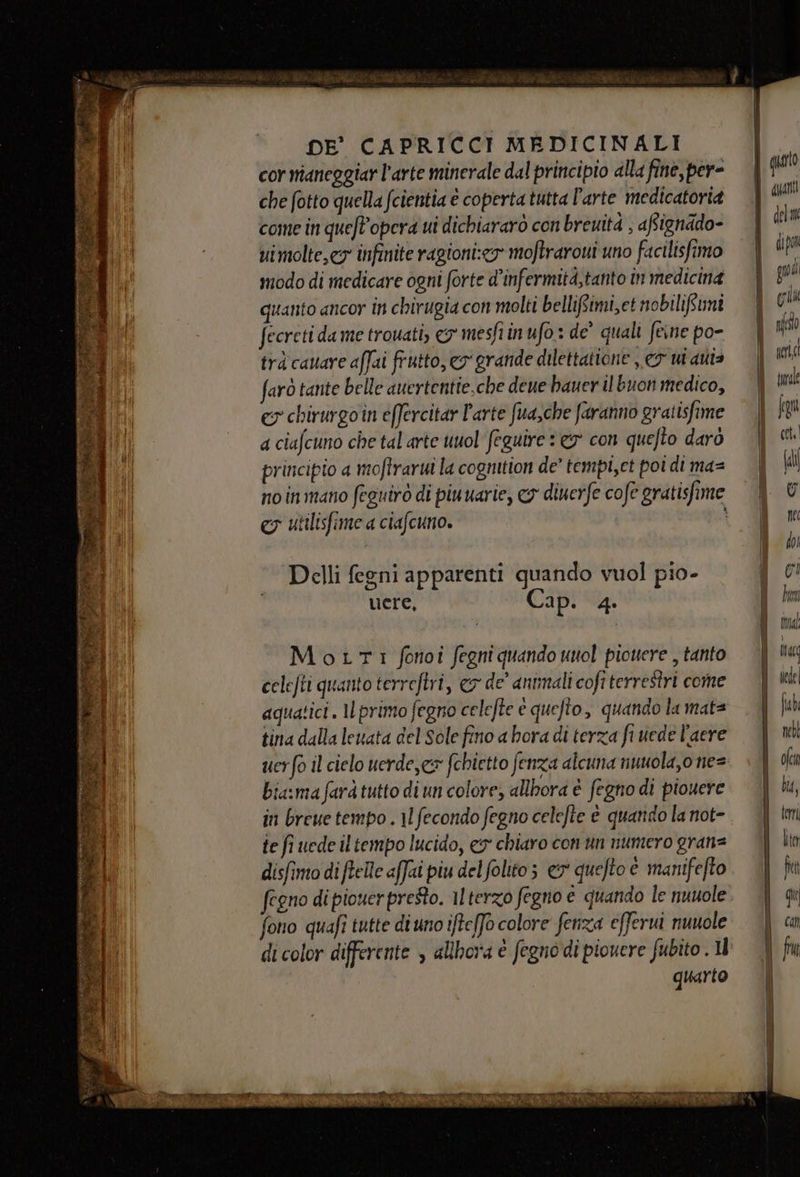 DE' CAPRICCI MEDICINALI
cor maneggiar l'arte minerale dal principio alla fine, per=
che ſotto quella ſcientia è coperta tutta l'arte medicatoria
come in queſt'opera ui dichiararò con breuità, aſsignādo-
ui molte, & infinite ragioni: & moſtraroui uno facilisſimo
modo di medicare ogni ſorte d'infermità, tanto in medicina
quanto ancor in chirugia con molti belliſsimi, et nobiliſsimi
ſecreti da me trouati, & mesſi in uſo: de' quali ſe ne po-
trà cauare aſſai frutto, & grande dilettatione, & ui auis
farò tante belle auertentie, che deue hauer il buon medico,
& chirurgo in eſſercitar l'arte ſua, che ſaranno gratisſime
a ciaſcuno che tal arte uuol ſeguire: & con queſto darò
principio a moſtrarui la cognition de' tempi, et poi di ma=
no in mano ſeguirò di piu uarie, & diuerſe coſe gratisſime
& utilisſime a ciaſcuno.
Delli ſegni apparenti quando vuol pio-
uere, Cap. 4.
MOLTI ſono i ſegni quando uuol piouere, tanto
celeſti quanto terreſtri, & de' animali coſi terreſtri come
aquatici. Il primo ſegno celeſte è queſto, quando la mat=
tina dalla leuata del Sole fino a hora di terza ſi uede l'aere
uerſo il cielo uerde, & ſchietto ſenza alcuna nuuola, o ne=
bia: ma ſarà tutto di un colore, allhora è ſegno di piouere
in breue tempo. Il ſecondo ſegno celeſte è quando la not-
te ſi uede il tempo lucido, & chiaro con un numero gran=
disſimo di ſtelle aſſai piu del ſolito; & queſto è manifeſto
ſegno di piouer preſto. Il terzo ſegno è quando le nuuole
ſono quaſi tutte di uno iſteſſo colore ſenza eſſerui nuuole
di color differente, allhora è ſegno di piouere ſubito. Il
quarto